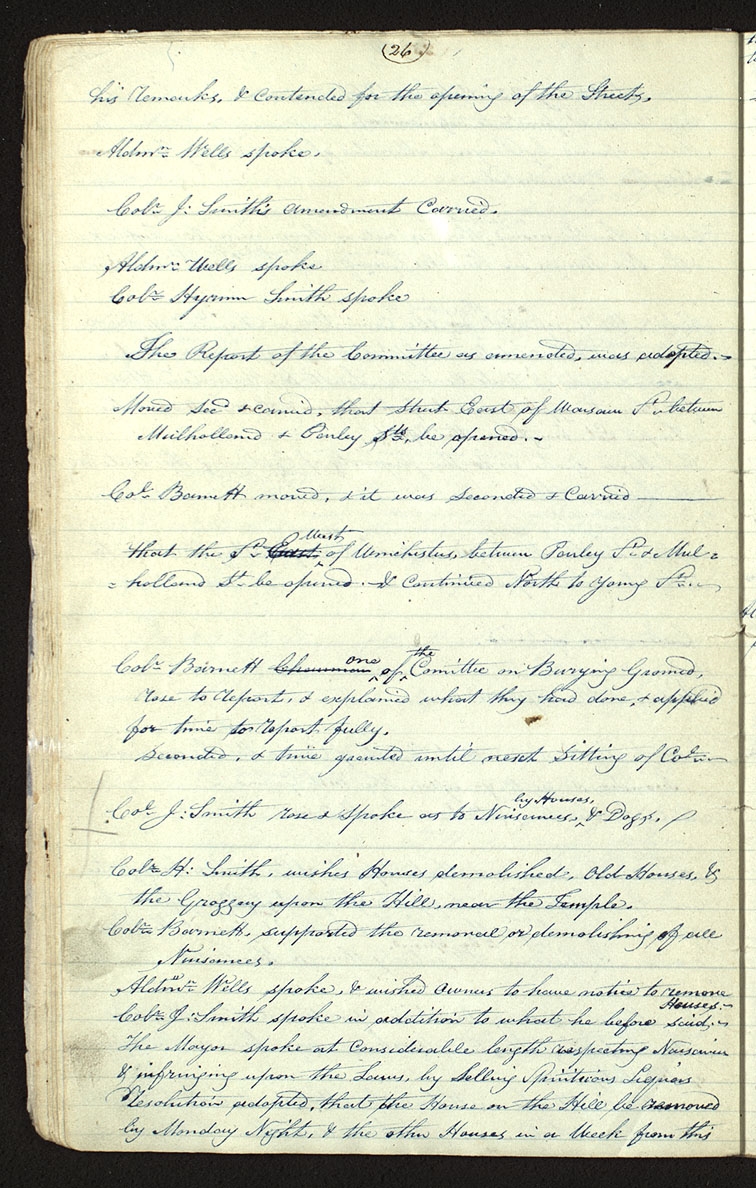 (26)
his remarks, & contended for the opening of the Streets.
Aldmn. Wells spoke.
Colr. J: Smith's amendment Carried.
Aldmn. Wells spoke
Colr. Hyrum Smith spoke
The Report of the Committee as amended, was adopted.-
Moved Secd. & carried, that street East of Warsaw St. between
Mulholland & Parley Sts. be opened.-
Colr. Barnett moved, & it was seconded & Carried
that the St. East West of Winchester, between Parley St. & Mul=
=holland St. be opened. & Continued North to Young St.
Colr. Barnett Chairman one of the Comittee on Burying Ground,
rose to report, & explained what they had done, & applied
for time to report fully.
Seconded, & time granted until next Sitting of Col.
Col. J: Smith rose & Spoke as to Nuisances, by Houses, & Dogs.
Colr. H: Smith, wishes Houses demolished, Old Houses, &
the Groggary upon the Hill, near the Temple.
Colr. Barnett, supported the removal or demolishing of all
Nuisances.
Aldmn. Wells spoke, & wished owners to have notice to remove
Houses.-
Colr. J: Smith spoke in addition to what he before said.-
The Mayor spoke at Considerable length respecting Nuisances
& infringing upon the Laws, by Selling Spirituous Liquors
Resolution adopted, that the House on the Hill be removed
by Monday Night, & the other Houses in a Week from this